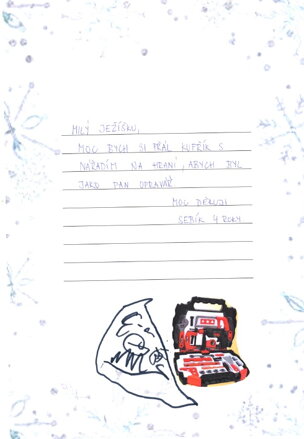 MILÝ JEŽÍŠKU,
MOC BYCH SI PŘÁL KUFŘÍK S
NÁŘADÍM NA HRANÍ, ABYCH BYL
JAKO PAN OPRAVÁŘ
MOC DĚKUJI
SEBÍK 4 ROKY